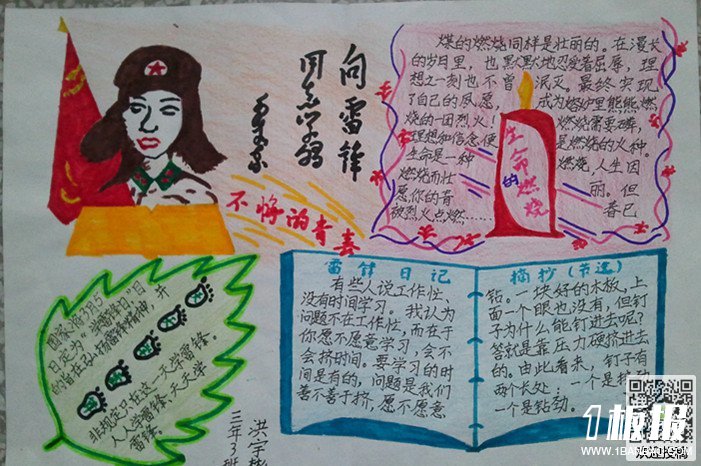 向雷锋
同志学习
毛泽东
不悔的青春
煤的燃烧同样是壮丽的。在漫长
的岁月里，也默默地忍受着屈辱，理
想之一刻也不曾泯灭。最终实现
了自己的夙愿，成为燃炉里熊熊燃
烧的一团烈火！燃烧需要磷，
理想和信念便是燃烧的火种。
生命是一种燃烧，人生因
燃烧而壮丽。但
愿你的青春已
被烈火点燃……
生命的燃烧
国家把3月5
日定为“学雷锋日”目
的旨在弘扬雷锋精神，并
非规定只在这一天学雷锋。
人人学雷锋，天天学
雷锋。
三年3班
洪宇彬
雷锋日记
有些人说工作忙、
没有时间学习。我认为
问题不在工作忙，而在于
你愿不愿意学习，会不
会挤时间。要学习的时
间是有的，问题是我们
善不善于挤，愿不愿意
摘抄（节选）
钻。一块好的木板，上
面一个眼也没有，但钉
子为什么能钉进去呢？
答就是靠压力硬挤进去
的。由此看来，钉子有
两个长处：一个是挤劲
一个是钻劲。
1板报
WWW.1BANBAO.COM
欢迎投稿